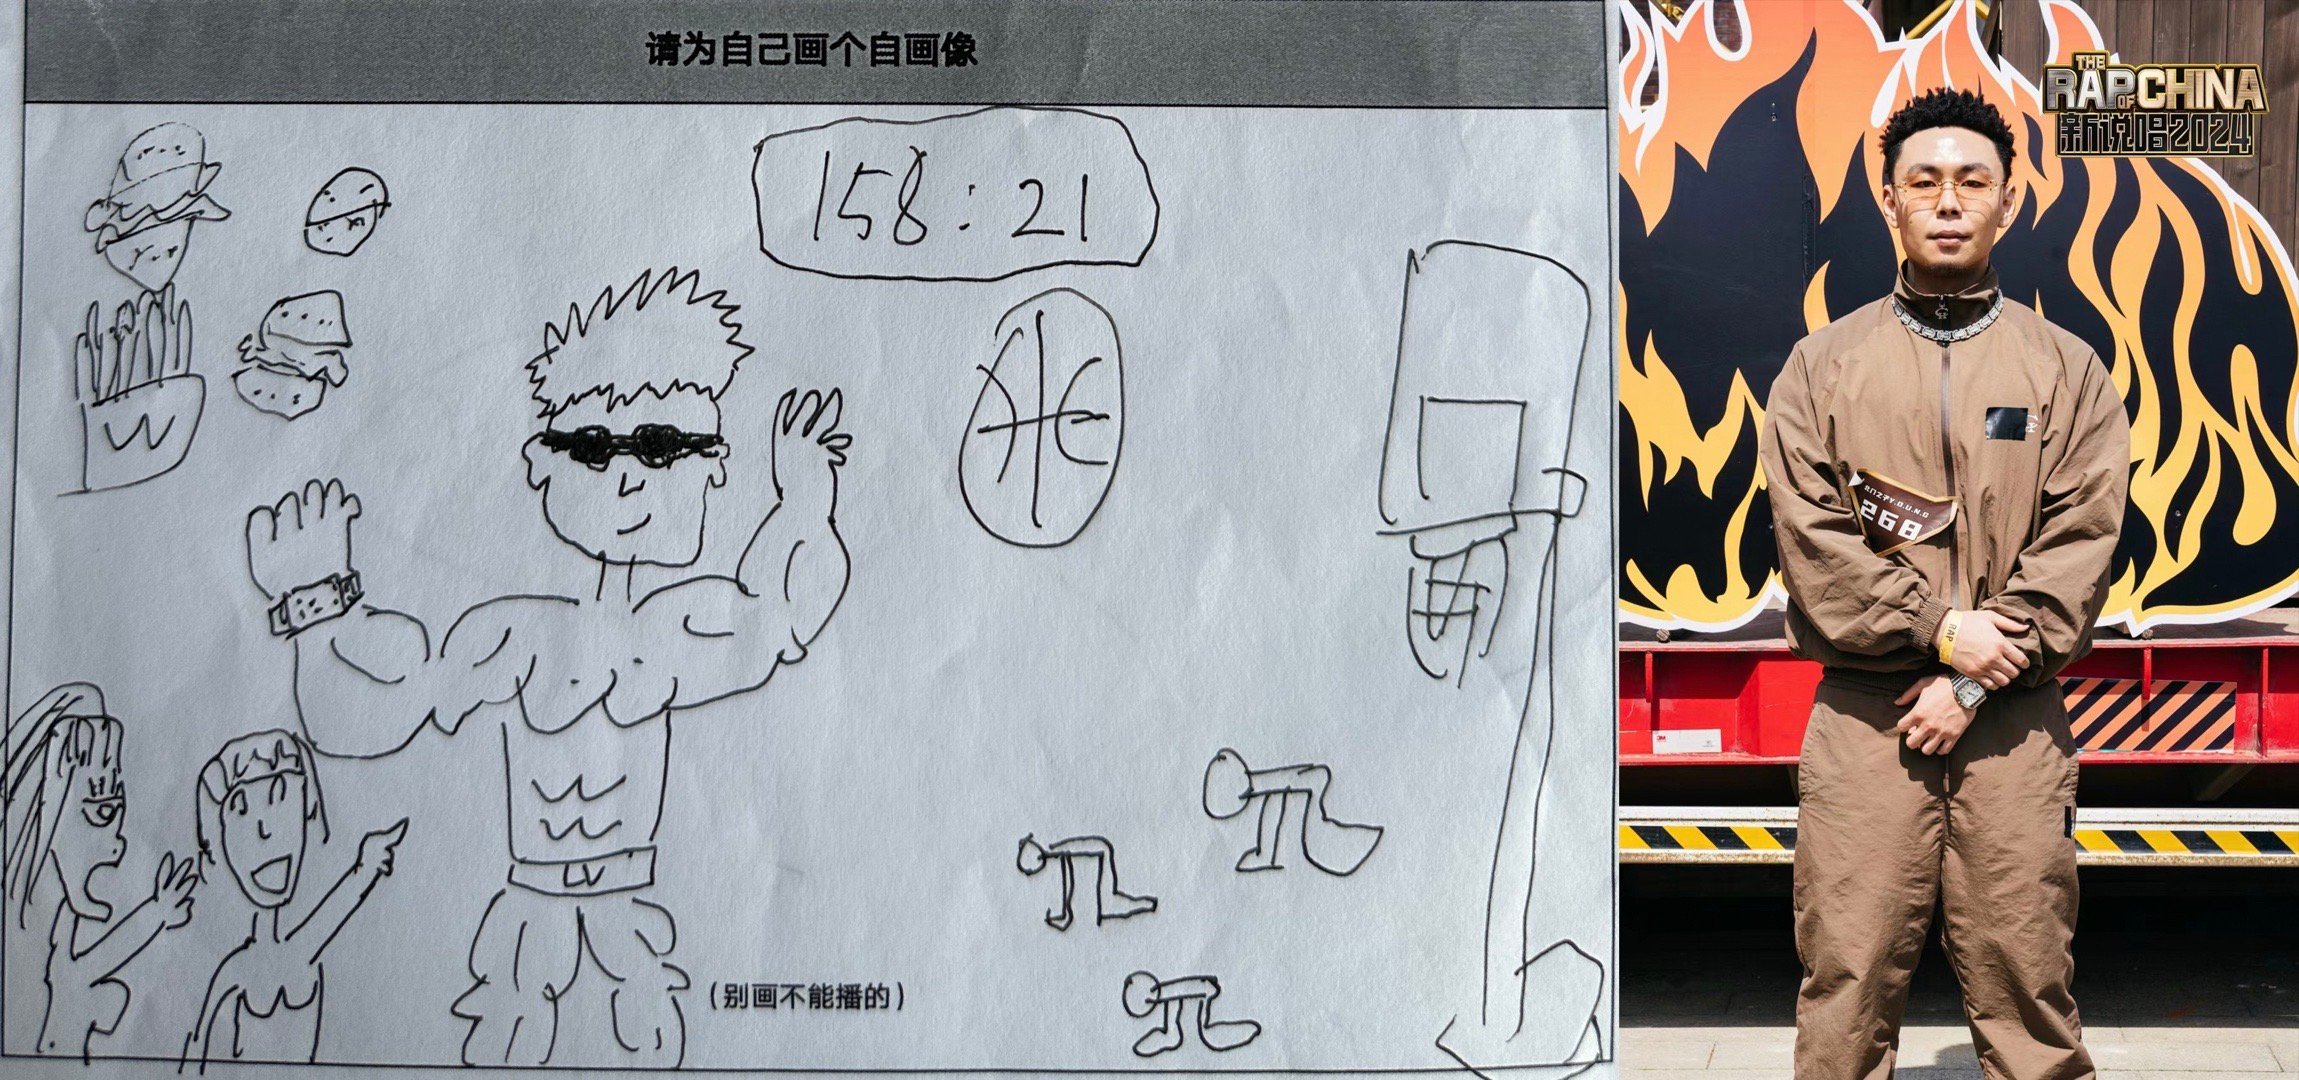 请为自己画个自画像
158:21
W
LV
(别画不能播的)
THE
RAP OF CHINA
新说唱2024
268
RAP
3M